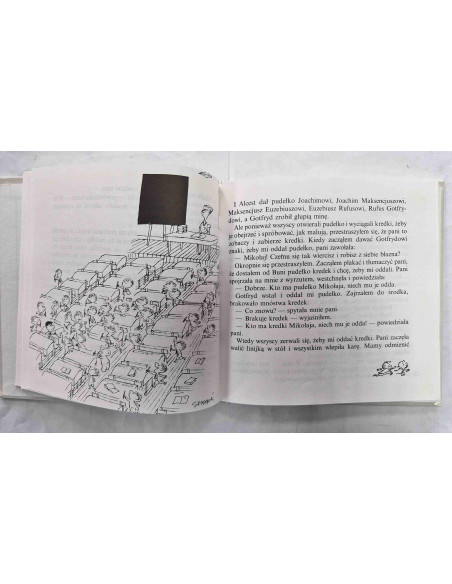 SEMPÉ
I Alcest dał pudełko Joachimowi, Joachim Maksencjuszowi,
Maksencjusz Euzebiuszowi, Euzebiusz Rufusowi, Rufus Gotfry-
dowi, a Gotfryd zrobił głupią minę.
Ale ponieważ wszyscy otwierali pudełko i wyciągali kredki, żeby
je obejrzeć i spróbować, jak malują, przestraszyłem się, że pani to
zobaczy i zabierze kredki. Kiedy zacząłem dawać Gotfrydowi
znaki, żeby mi oddał pudełko, pani zawołała:
— Mikołaj! Czemu się tak wiercisz i robisz z siebie błazna?
Okropnie się przestraszyłem. Zacząłem płakać i tłumaczyć pani,
że dostałem od Buni pudełko kredek i chcę, żeby mi oddali. Pani
spojrzała na mnie z wyrzutem, westchnęła i powiedziała:
— Dobrze. Kto ma pudełko Mikołaja, niech mu je odda.
Gotfryd wstał i oddał mi pudełko. Zajrzałem do środka,
brakowało mnóstwa kredek.
— Co znowu? — spytała mnie pani.
— Brakuje kredek — wyjaśniłem.
— Kto ma kredki Mikołaja, niech mu je odda — powiedziała
pani.
Wtedy wszyscy zerwali się, żeby mi oddać kredki. Pani zaczęła
walić linijką w stół i wszystkim wlepiła karę. Mamy odmienić